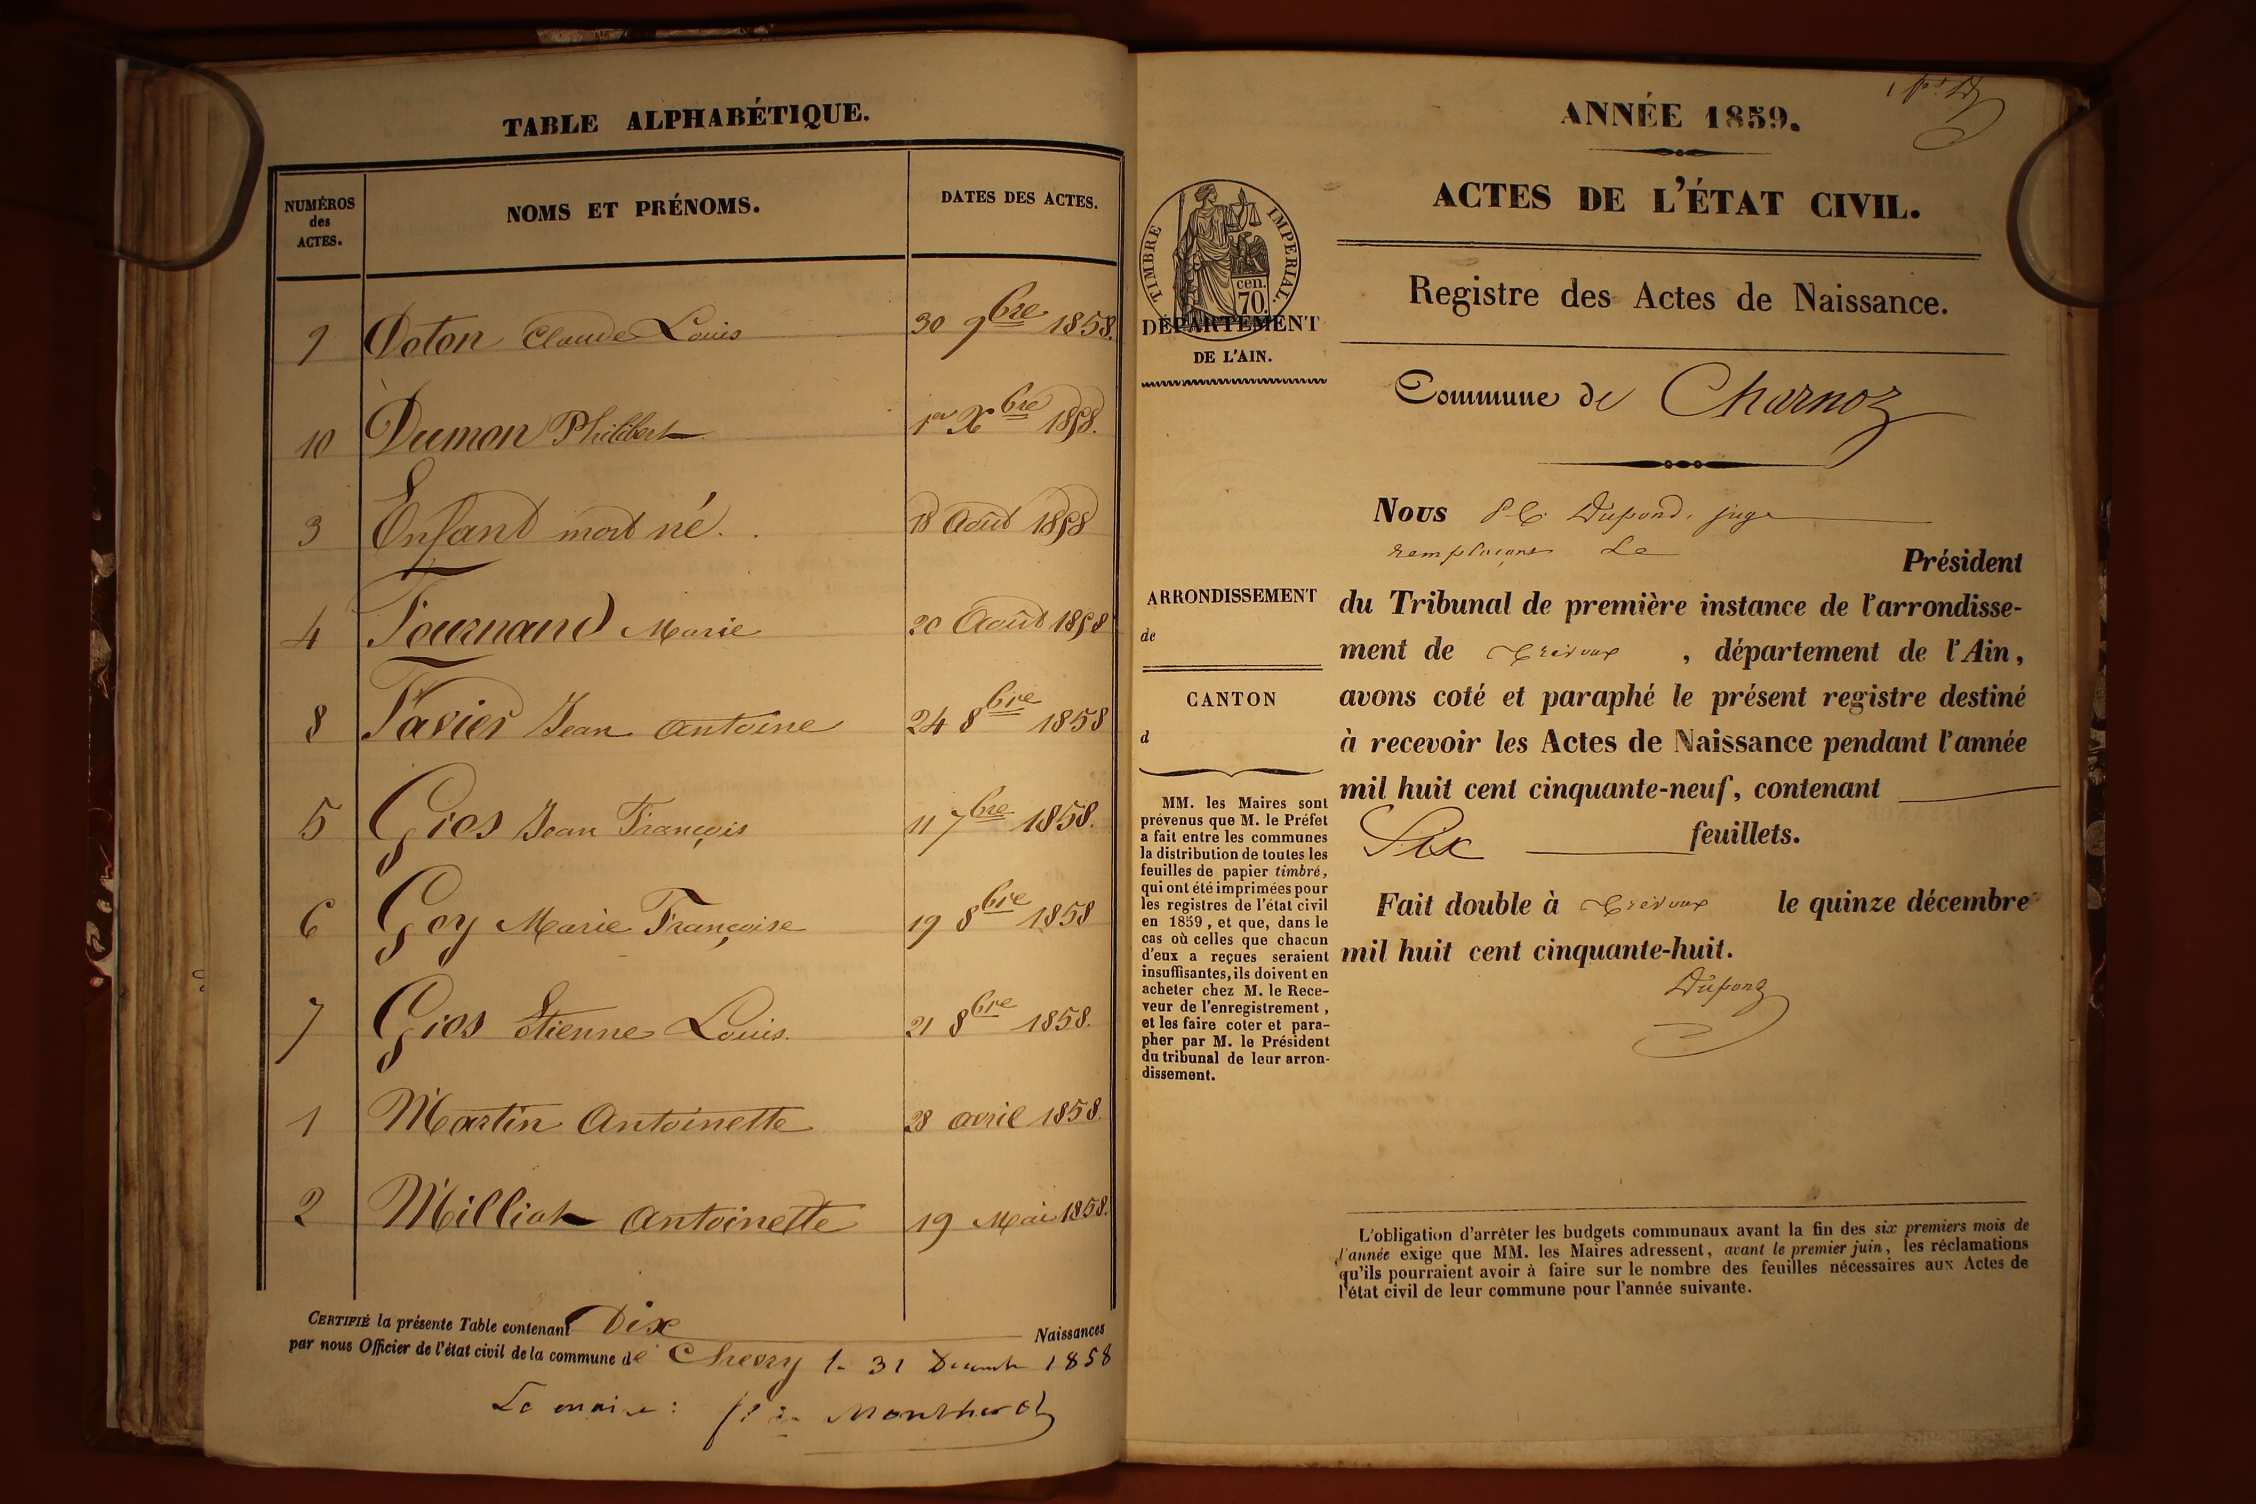 TABLE ALPHABÉTIQUE.
NUMÉROS des ACTES. NOMS ET PRÉNOMS. DATES DES ACTES.
9 Doton Claude Louis 30 9bre 1858.
10 Dumon Philibert 1er Xbre 1858.
3 Enfant mort né. 18 Août 1858
4 Fournand Marie 20 Août 1858
8 Favier Jean Antoine 24 8bre 1858
5 Gios Jean François 11 7bre 1858.
6 Goy Marie Françoise 19 8bre 1858
7 Gios Etienne Louis. 21 8bre 1858.
1 Martin Antoinette 28 avril 1858.
2 Milliat Antoinette 19 Mai 1858.
CERTIFIÉ la présente Table contenant Dix Naissances
par nous Officier de l'état civil de la commune de le 31 Décembre 1858
Le maire :
ANNÉE 1859.
ACTES DE L'ÉTAT CIVIL.
Registre des Actes de Naissance.
TIMBRE IMPERIAL.
cen.
70.
DÉPARTEMENT
DE L'AIN.
Commune de Charnoz
Nous Dupond, juge
remplaçant Le
Président
du Tribunal de première instance de l'arrondisse-
ment de Trévoux , département de l'Ain,
avons coté et paraphé le présent registre destiné
à recevoir les Actes de Naissance pendant l'année
mil huit cent cinquante-neuf, contenant
Six feuillets.
Fait double à Trévoux le quinze décembre
mil huit cent cinquante-huit.
Dupond
ARRONDISSEMENT
de
CANTON
d
MM. les Maires sont
prévenus que M. le Préfet
a fait entre les communes
la distribution de toutes les
feuilles de papier timbré,
qui ont été imprimées pour
les registres de l'état civil
en 1859, et que, dans le
cas où celles que chacun
d'eux a reçues seraient
insuffisantes, ils doivent en
acheter chez M. le Rece-
veur de l'enregistrement,
et les faire coter et para-
pher par M. le Président
du tribunal de leur arron-
dissement.
L'obligation d'arrêter les budgets communaux avant la fin des six premiers mois de
l'année exige que MM. les Maires adressent, avant le premier juin, les réclamations
qu'ils pourraient avoir à faire sur le nombre des feuilles nécessaires aux Actes de
l'état civil de leur commune pour l'année suivante.